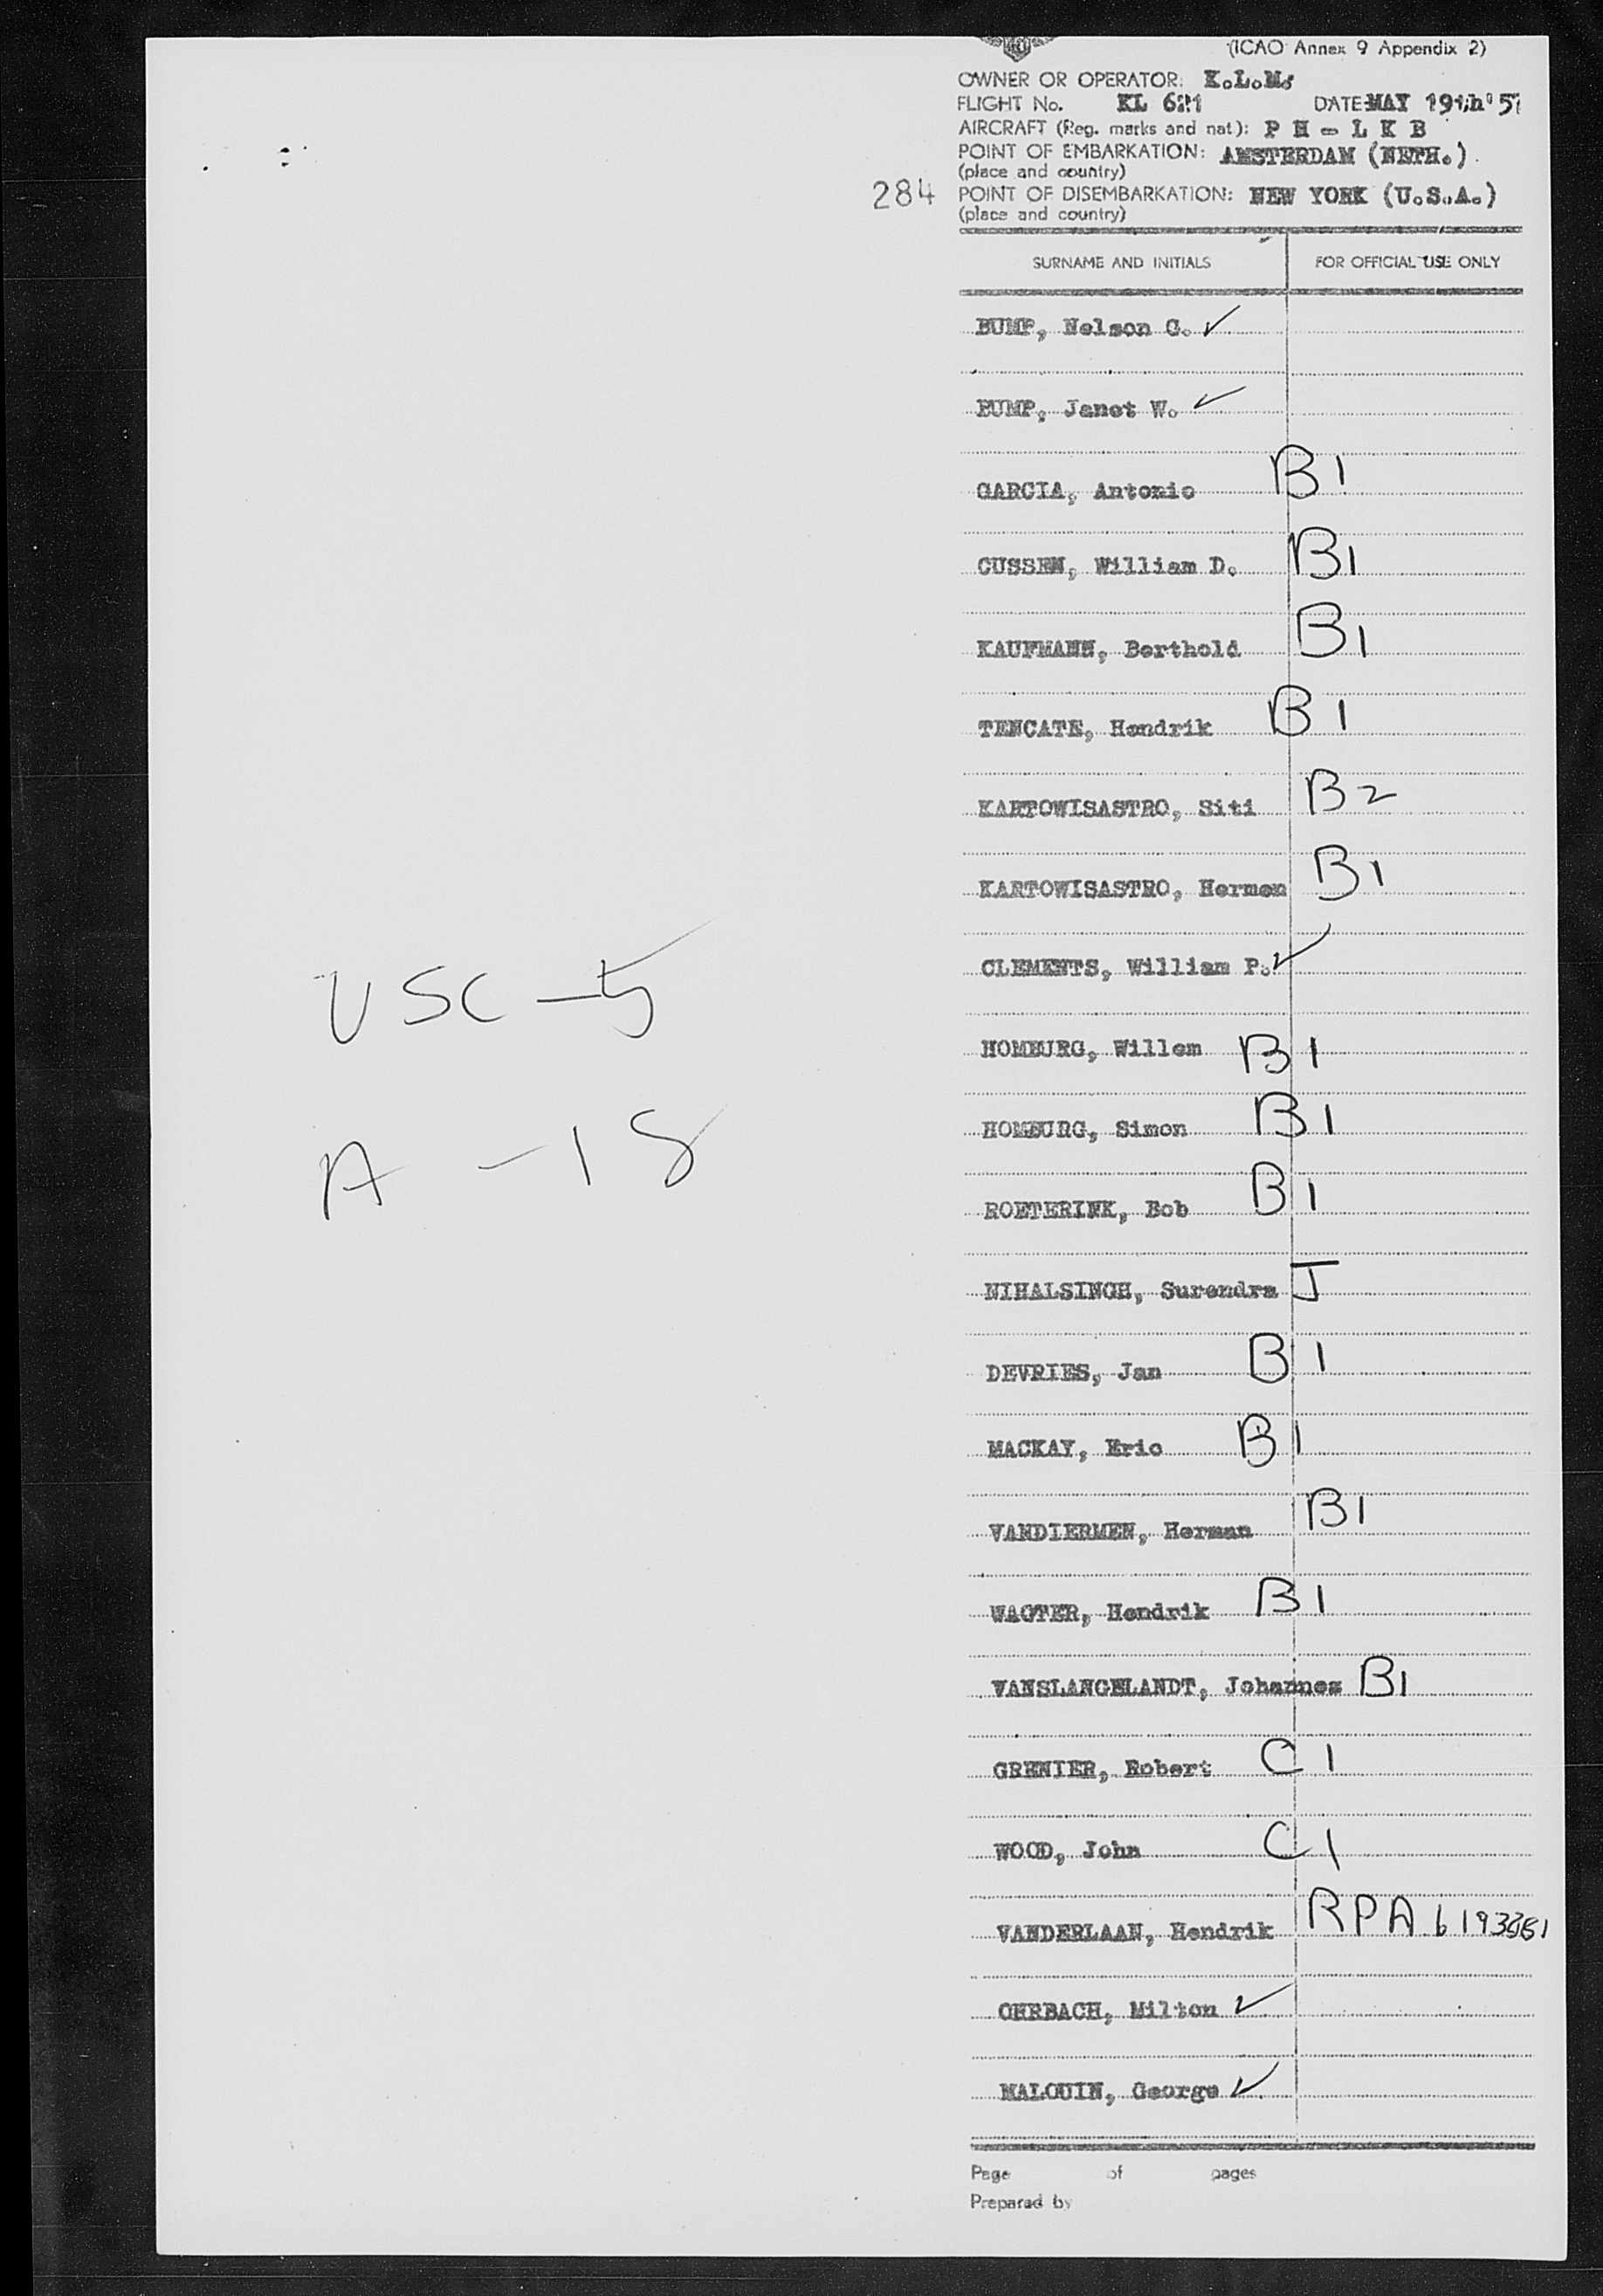 (ICAO Annex 9 Appendix 2)
OWNER OR OPERATOR: K.L.M.
FLIGHT No. KL 621 DATE MAY 19th '5
AIRCRAFT (Reg. marks and nat): P H - L K B
POINT OF EMBARKATION: AMSTERDAM (NETH.)
(place and country)
284 POINT OF DISEMBARKATION: NEW YORK (U.S.A.)
(place and country)
SURNAME AND INITIALS FOR OFFICIAL USE ONLY
BUMP, Nelson G. ✓
BUMP, Janet W. ✓
GARCIA, Antonio B1
CUSSEN, William D. B1
KAUFMANN, Berthold B1
TENCATE, Hendrik B1
KARTOWISASTRO, Siti B2
KARTOWISASTRO, Hermen B1
USC - 5
CLEMENTS, William P. ✓
HOMBURG, Willem B1
HOMBURG, Simon B1
A - 18
ROETERINK, Bob B1
NIHALSINGH, Surendra J
DEVRIES, Jan B1
MACKAY, Eric B1
VANDIERMEN, Herman B1
WAGTER, Hendrik B1
VANSLANGELANDT, Johannes B1
GRENIER, Robert C1
WOOD, John C1
VANDERLAAN, Hendrik RPA
OHRBACH, Milton ✓
MALOUIN, George ✓
Page of pages
Prepared by